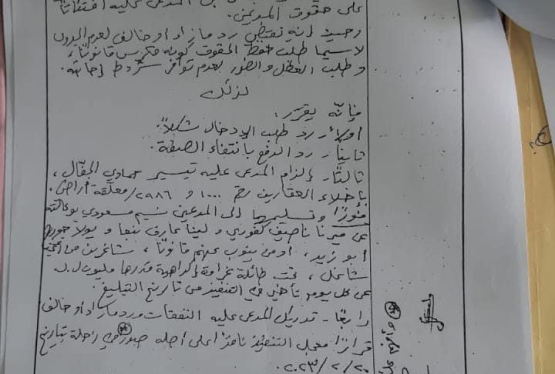 على حقوق المدعين.
وحيث إنه يقتضي رد ما زاد أو خالف لعدم الجدوى
لاسيما طلب حفظ الحقوق كونه مكرس قانونًا،
و طلب العطل والضرر لعدم توافر شروط إجابته.
لذلك
فإنّه يقرر:
أولاً: رد طلب الإدخال شكلاً.
ثانيًا: رد الدفع بانتفاء الصفة.
ثالثًا: إلزام المدعى عليه تيسير حمادي الجقال،
بإخلاء العقارين رقم ١٠٠٠ و ٢٩٨٦ / معلقة أراضي،
فورًا وتسليمهما إلى المدعين نسيم مسعودي بوكالته
عن ميرنا ناصيف كفوري و لينا و يولا جورج
أبو زيد، أو من ينوب عنهم قانونًا، شاغرين من أي
شاغل، تحت طائلة غرامة إكراهية قدرها مليون ل.ل.
عن كل يوم تأخير في التنفيذ من تاريخ التبليغ.
رابعًا - تدريك المدعى عليه النفقات ورد ما زاد أو خالف
قرارًا معجل التنفيذ نافذًا على أصله صدر في زحلة بتاريخ
٢٠٢٣/٢/٢٠.